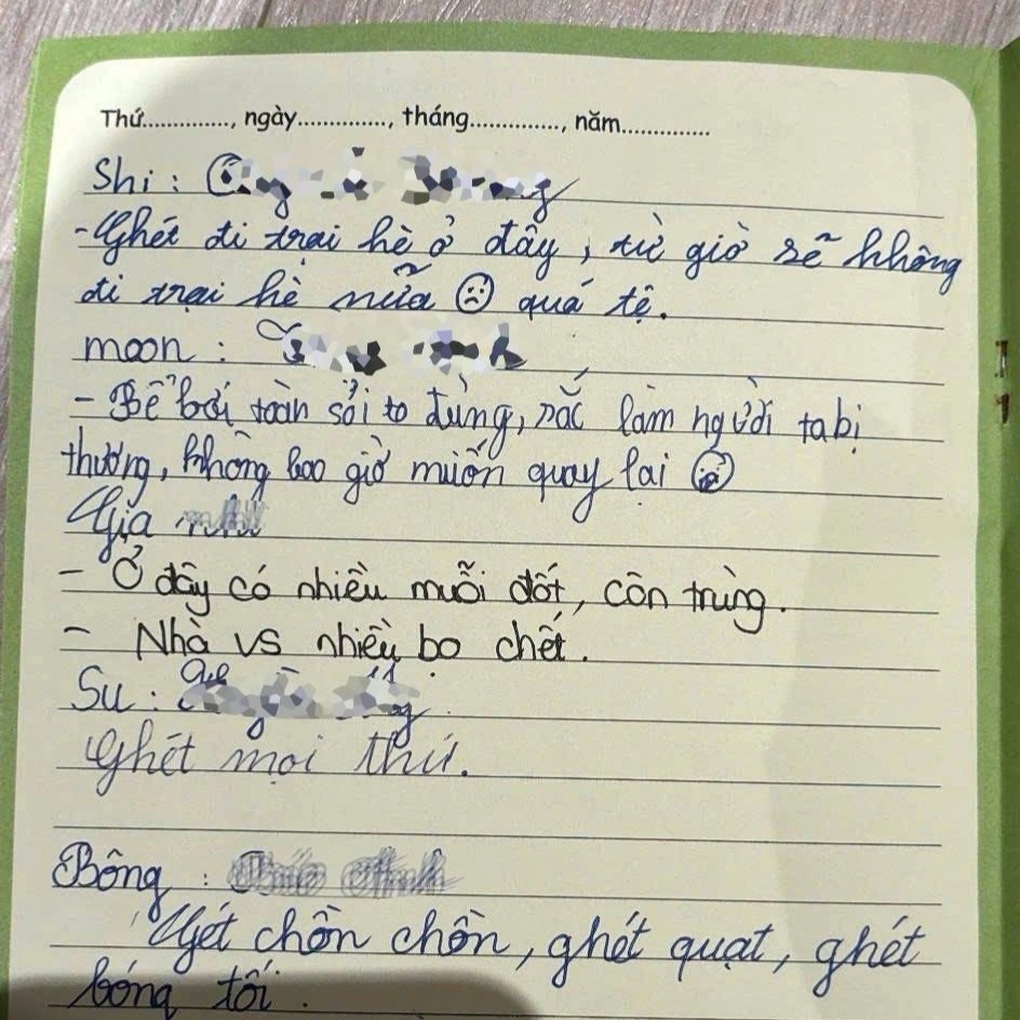 Thứ.............., ngày..............., tháng..............., năm...............
Shi :
- Ghét đi trại hè ở đây, từ giờ sẽ không
đi trại hè nữa ☹ quá tệ.
moon :
- Bể bơi toàn sỏi to đùng, rắc làm người ta bị
thương, không bao giờ muốn quay lại
Gia
- Ở đây có nhiều muỗi đốt, côn trùng.
- Nhà vs nhiều bọ chết.
Su :
Ghét mọi thứ.
Bông :
Ghét chồn chồn, ghét quạt, ghét
bóng tối.